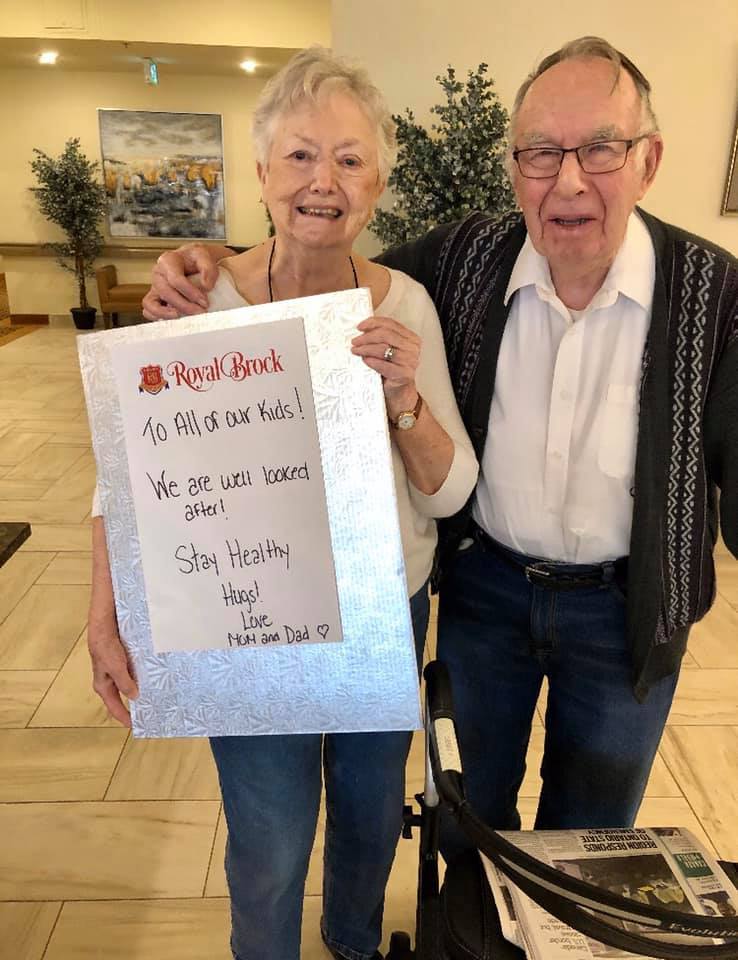 Royal Brock
To All of our Kids!
We are well looked
after!
Stay Healthy
Hugs!
Love
Mom and Dad ♡
REGION RESPONDS
TO ONTARIO STATE
OF EMERGENCY
Evolution